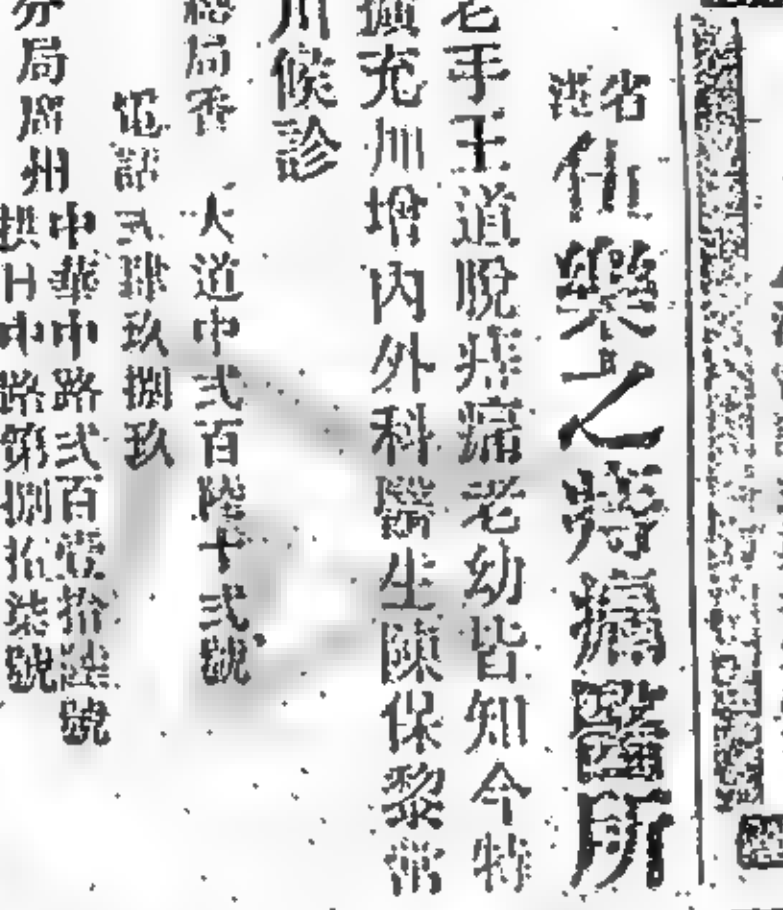 省港
伍樂之痔瘡醫所
老手王道脫痔瘡老幼皆知今特
擴充州增內外科醫生陳保黎常
川候診
總局香
大道中弍百陸十弍號
電話弍肆玖捌玖
分局廣州
中華中路弍百壹拾陸號
拱日中路第捌拾柒號